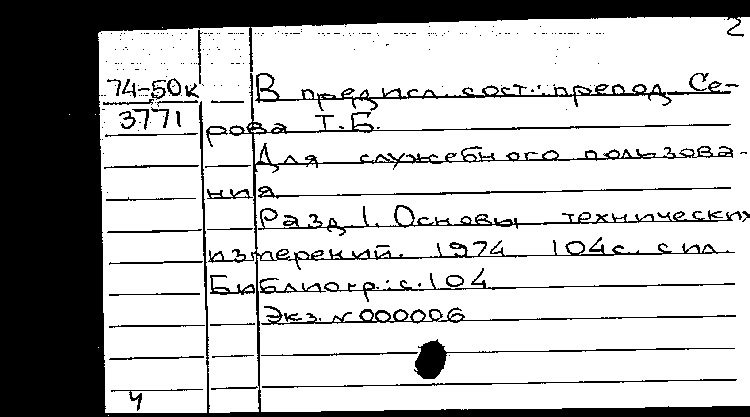 2
74-50к В предисл. сост.: препод. Се-
3771 рова Т.Б.
Для служебного пользова-
ния
Разд 1. Основы технических
измерений. 1974 104с. с ил.
Библиогр: с. 104
Экз. N 000006
4